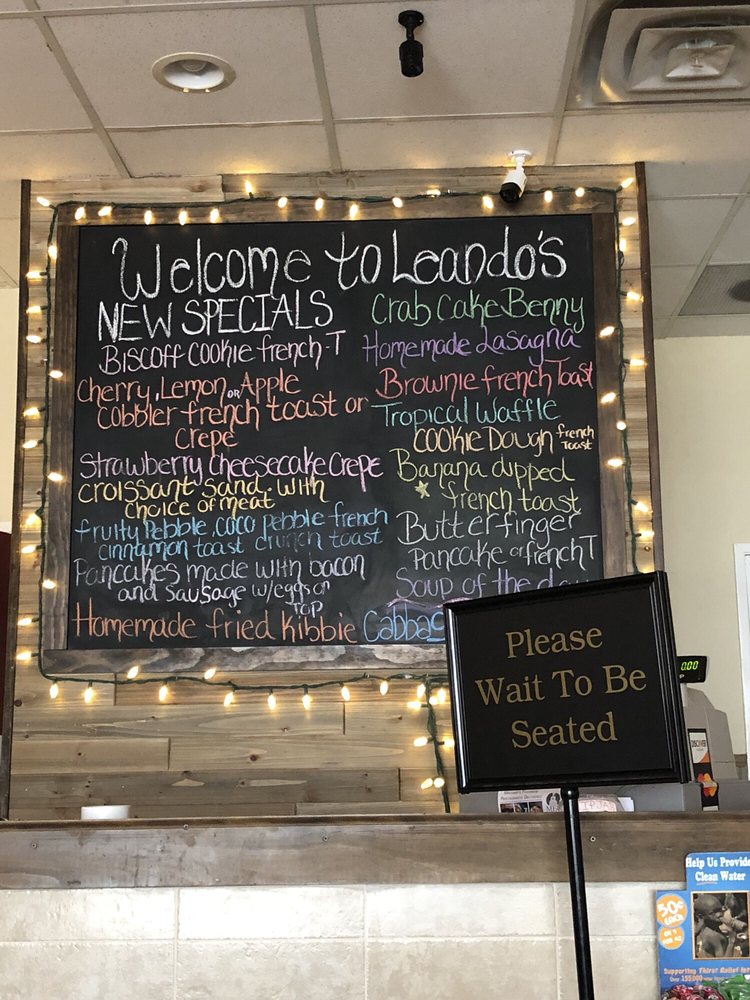 Welcome to Leando's
NEW SPECIALS
Biscoff Cookie french-T
Cherry, Lemon, OR Apple
Cobbler french toast or
Crepe
Strawberry Cheesecake Crepe
Croissant Sand. With
Choice of Meat
fruity Pebble, Coco Pebble french
Cinnamon toast crunch toast
Pancakes made with bacon
and Sausage w/eggs on
TOP
Homemade fried Kibbie
Crab Cake Benny
Homemade Lasagna
Brownie french Toast
Tropical Waffle
COOKIE DOUGH french
toast
Banana dipped
french toast
Butterfinger
Pancake or french T
Soup of the day
Please
Wait To Be
Seated
0.00
DISCOVER
Help Us Provide
Clean Water
50¢
EACH
Supporting Thirst Relief Int